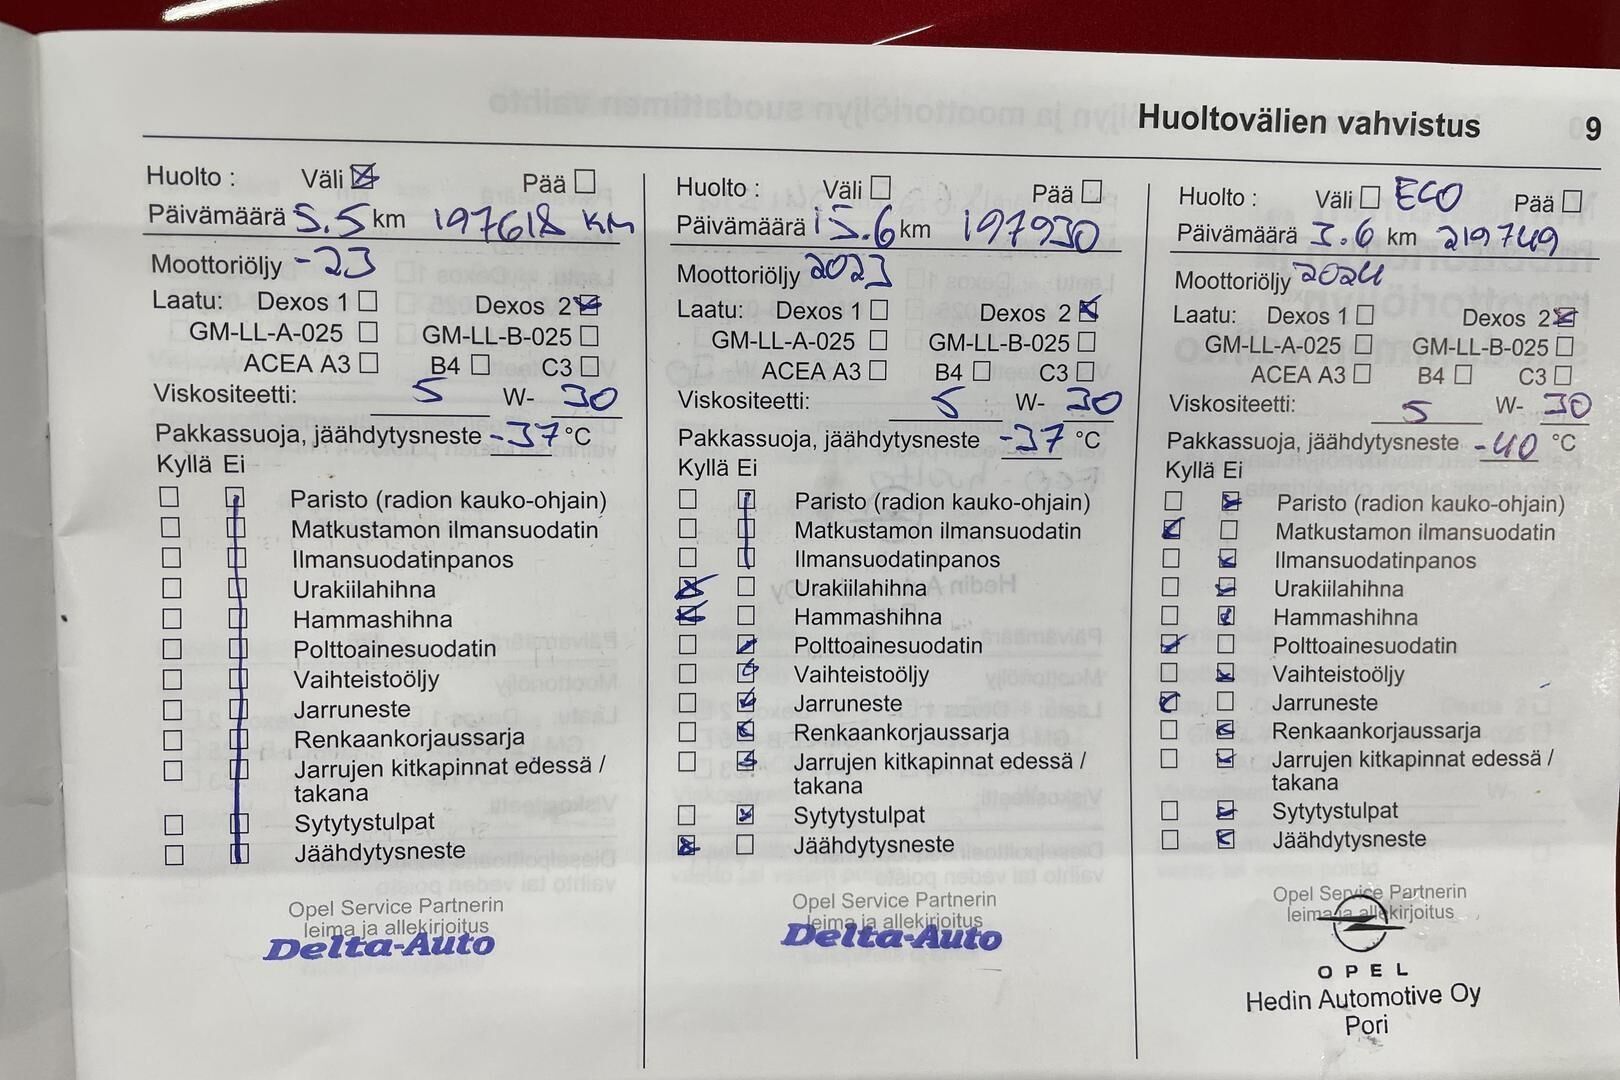 Huoltovälien vahvistus 9
Huolto : Väli ☒ Pää ☐
Päivämäärä 5.5 km 197618 KM
Moottoriöljy -23
Laatu: Dexos 1 ☐ Dexos 2 ☒
GM-LL-A-025 ☐ GM-LL-B-025 ☐
ACEA A3 ☐ B4 ☐ C3 ☐
Viskositeetti: 5 W- 30
Pakkassuoja, jäähdytysneste -37 °C
Kyllä Ei
Paristo (radion kauko-ohjain)
Matkustamon ilmansuodatin
Ilmansuodatinpanos
Urakiilahihna
Hammashihna
Polttoainesuodatin
Vaihteistoöljy
Jarruneste
Renkaankorjaussarja
Jarrujen kitkapinnat edessä /
takana
Sytytystulpat
Jäähdytysneste
Opel Service Partnerin
leima ja allekirjoitus
Delta-Auto
Huolto : Väli ☐ Pää ☐
Päivämäärä 15.6 km 197930
Moottoriöljy 2023
Laatu: Dexos 1 ☐ Dexos 2 ☒
GM-LL-A-025 ☐ GM-LL-B-025 ☐
ACEA A3 ☐ B4 ☐ C3 ☐
Viskositeetti: 5 W- 30
Pakkassuoja, jäähdytysneste -37 °C
Kyllä Ei
Paristo (radion kauko-ohjain)
Matkustamon ilmansuodatin
Ilmansuodatinpanos
Urakiilahihna
Hammashihna
Polttoainesuodatin
Vaihteistoöljy
Jarruneste
Renkaankorjaussarja
Jarrujen kitkapinnat edessä /
takana
Sytytystulpat
Jäähdytysneste
Opel Service Partnerin
leima ja allekirjoitus
Delta-Auto
Huolto : Väli ☐ ECO Pää ☐
Päivämäärä 3.6 km 219749
Moottoriöljy 2024
Laatu: Dexos 1 ☐ Dexos 2 ☒
GM-LL-A-025 ☐ GM-LL-B-025 ☐
ACEA A3 ☐ B4 ☐ C3 ☐
Viskositeetti: 5 W- 30
Pakkassuoja, jäähdytysneste -40 °C
Kyllä Ei
Paristo (radion kauko-ohjain)
Matkustamon ilmansuodatin
Ilmansuodatinpanos
Urakiilahihna
Hammashihna
Polttoainesuodatin
Vaihteistoöljy
Jarruneste
Renkaankorjaussarja
Jarrujen kitkapinnat edessä /
takana
Sytytystulpat
Jäähdytysneste
Opel Service Partnerin
leima ja allekirjoitus
OPEL
Hedin Automotive Oy
Pori